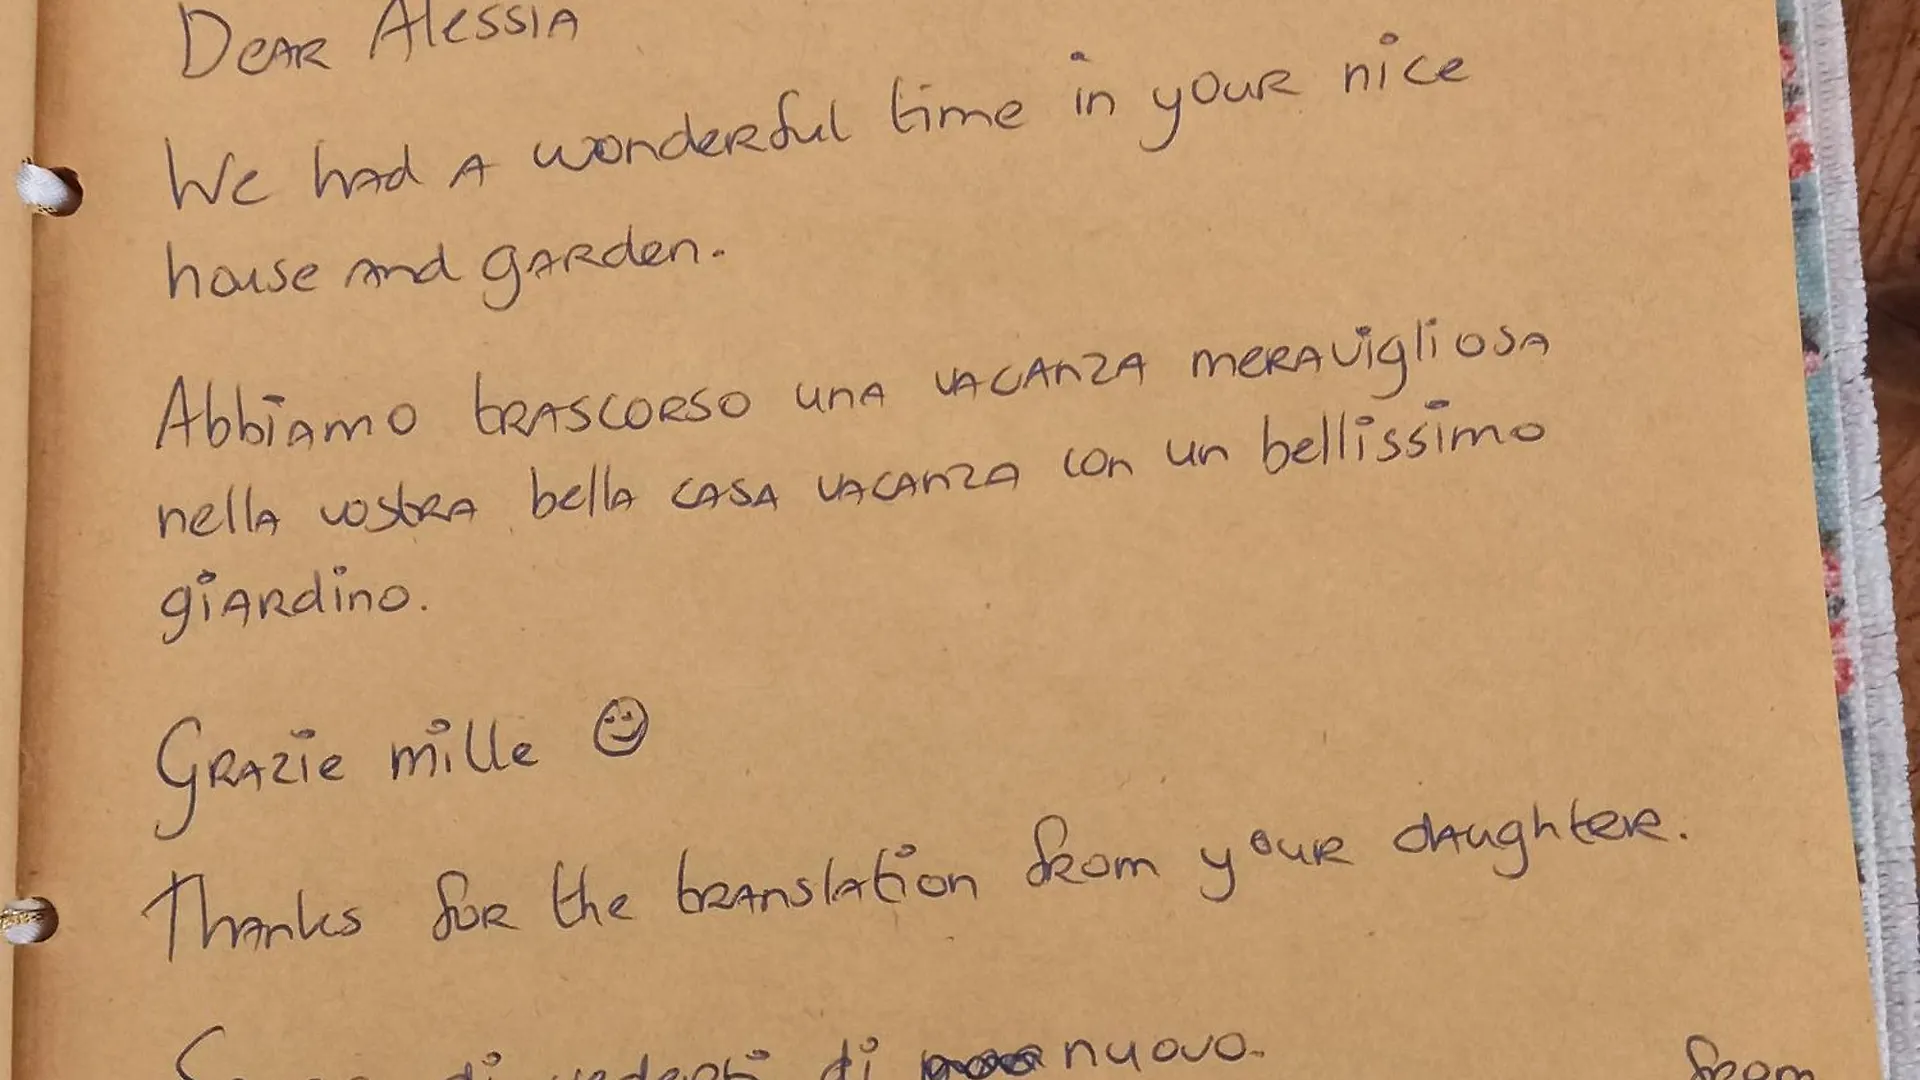 Dear Alessia
We had a wonderful time in your nice
house and garden.
Abbiamo trascorso una vacanza meravigliosa
nella vostra bella casa vacanza con un bellissimo
giardino.
Grazie mille ☺
Thanks for the translation from your daughter.
di vederti di nuovo.
from